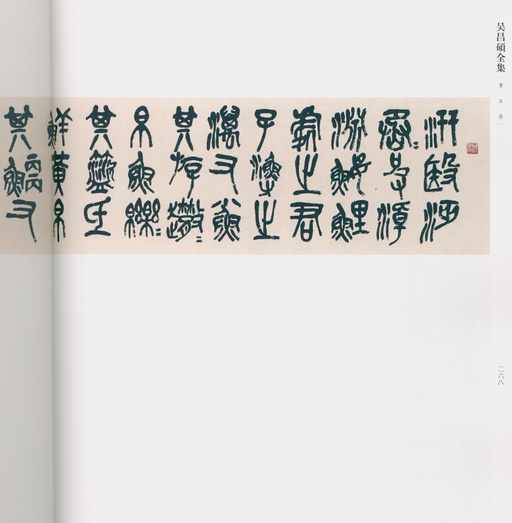 吴昌碩全集
書法卷
汧殹沔
丞皮淖
淵鰋鯉
處之君
子漁之
澫又鯊
其斿
帛魚鱳
其盜氐
鮮黃帛
其鯿又
二六八